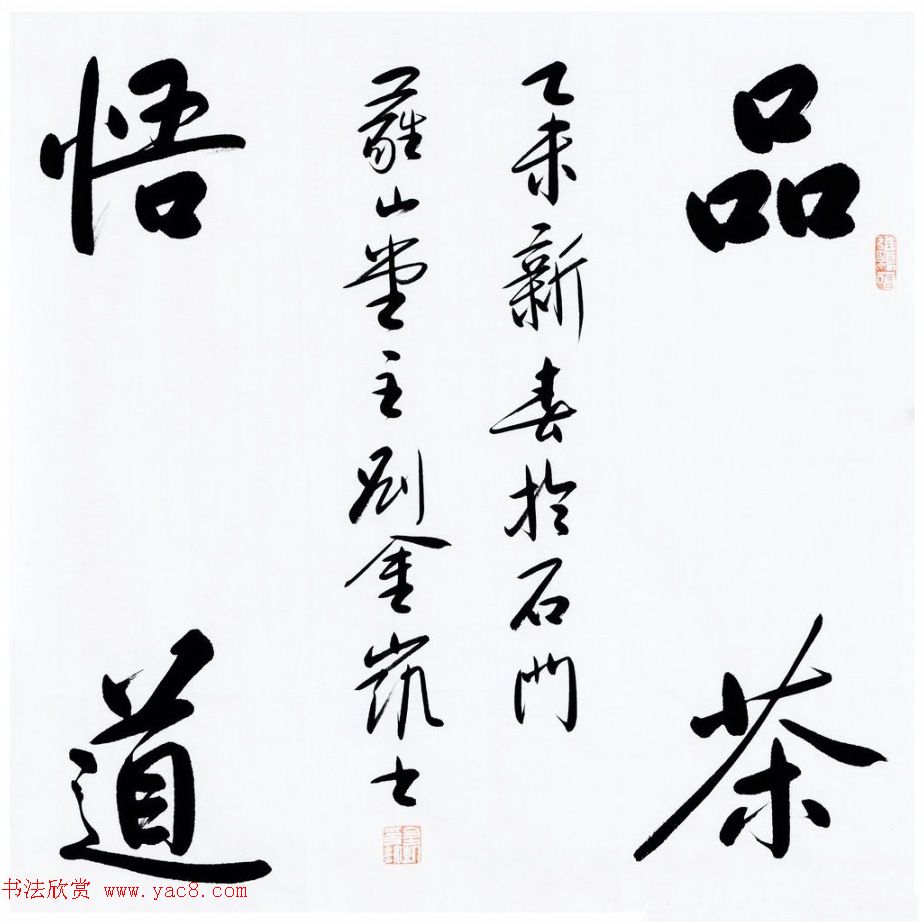 品茶
乙未新春於石門
山堂主刘金凯书
悟道
书法欣赏 www.yac8.com